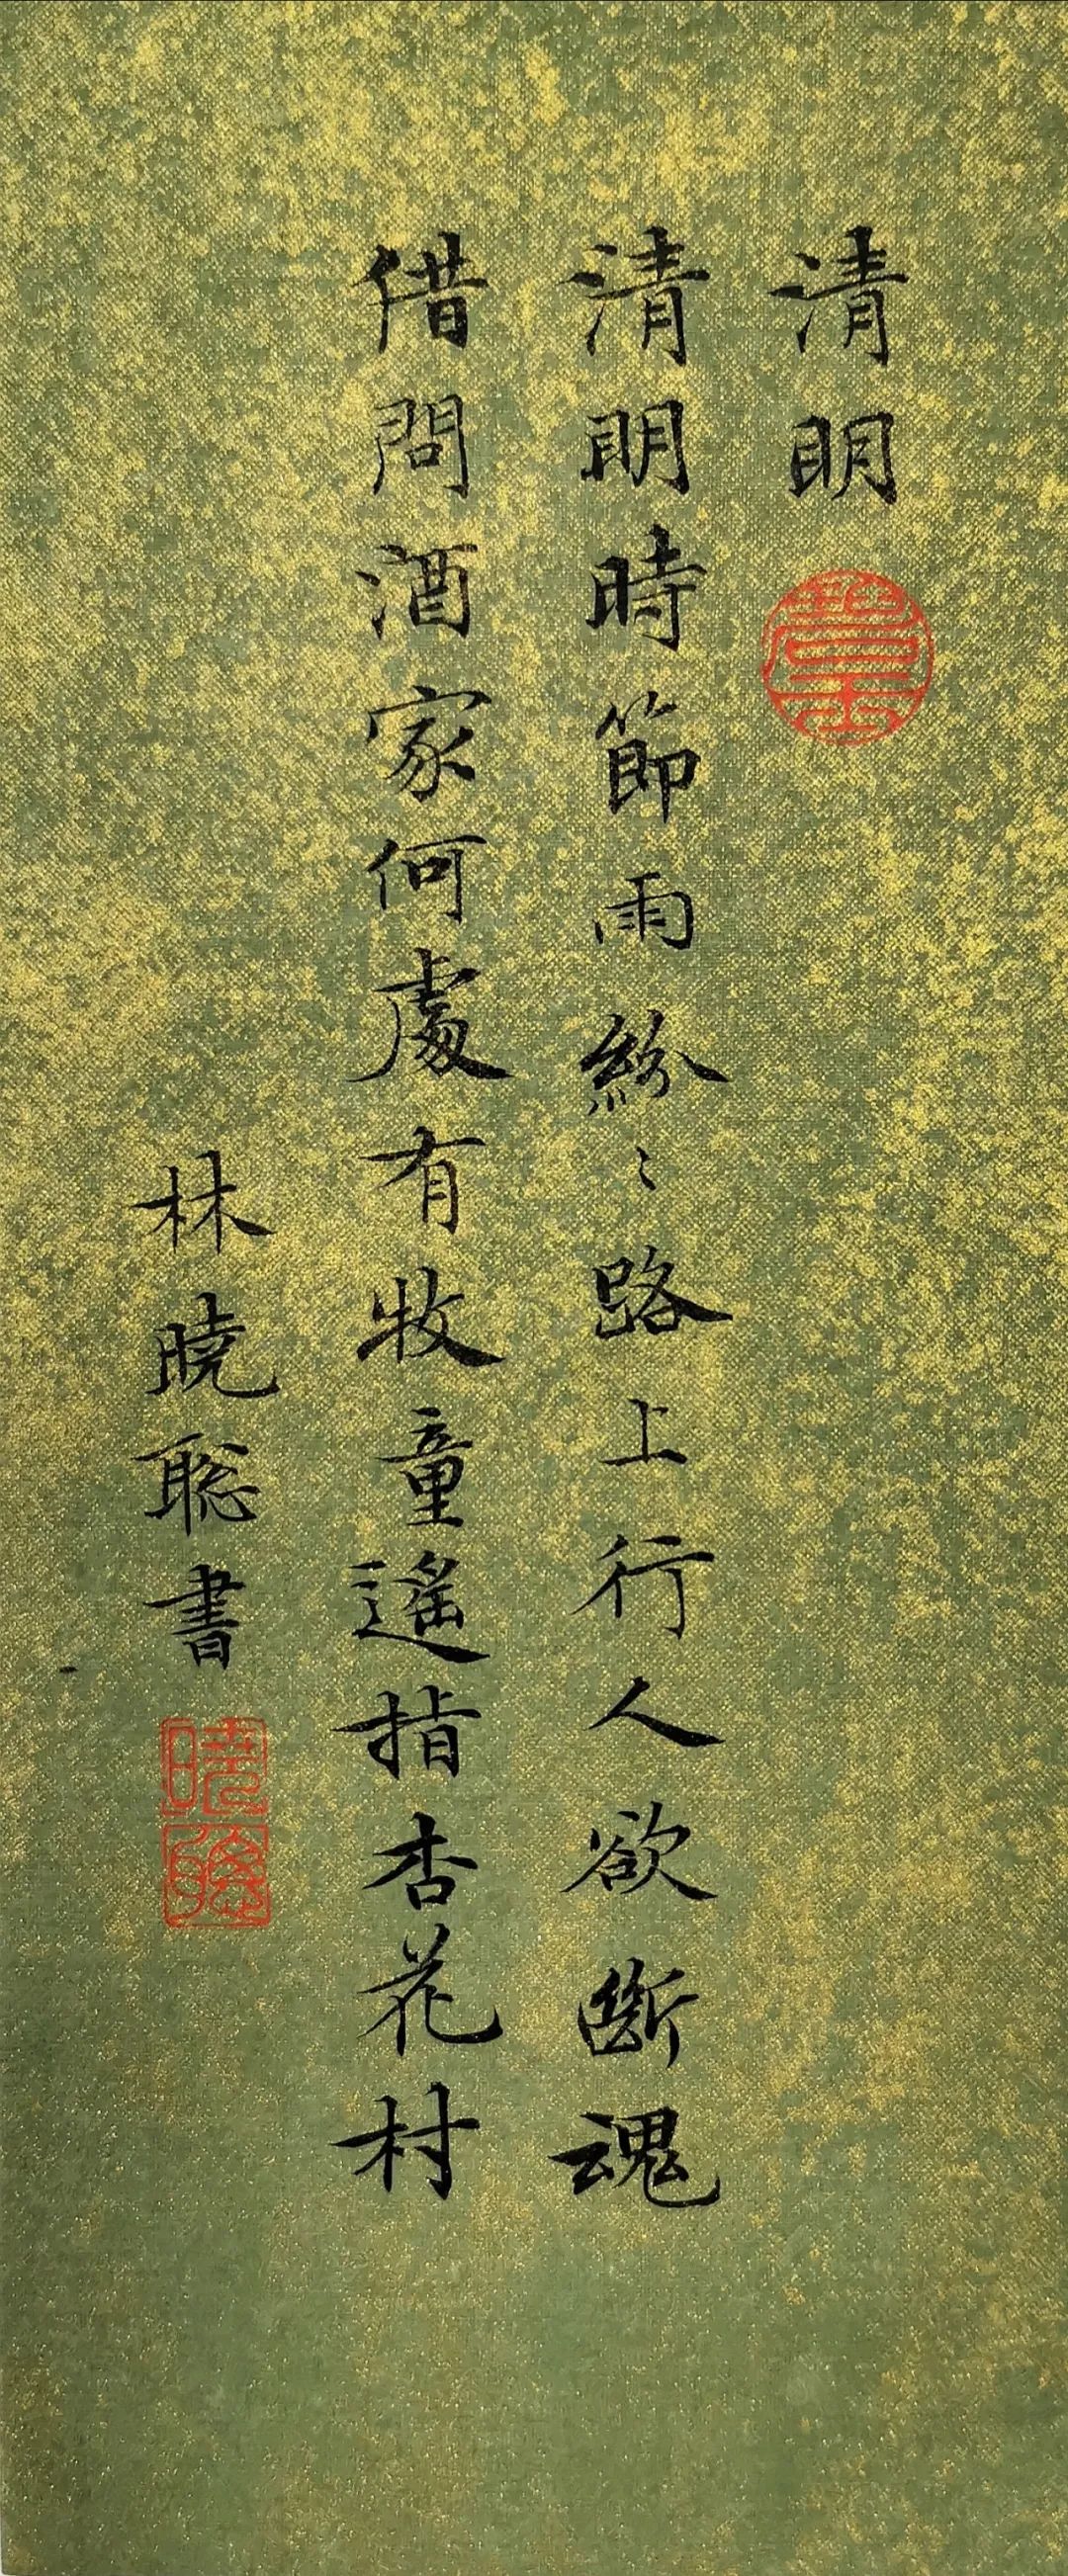 清明
清明時節雨紛〻路上行人欲斷魂
借問酒家何處有牧童遙指杏花村
林曉聡書
曉聰